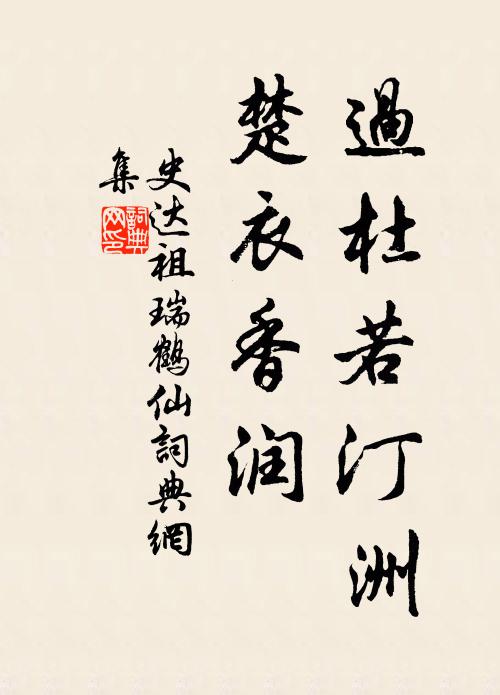 過杜若汀洲
楚衣香润
史达祖瑞鶴仙詞典網
集
詞典网印